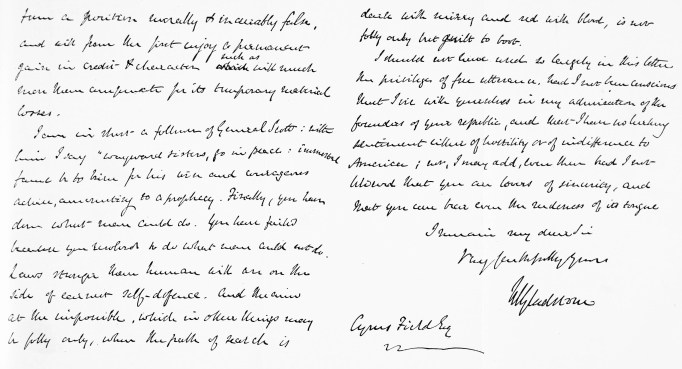 turn a position morally & incurably false,
and will from the first enjoy a permanent
gain in credit & character such as will much
more than compensate for its temporary material
losses.
I am in short a follower of General Scott: with
him I say "wayward sisters, go in peace: immortal
fame be to him for his wise and courageous
advice, amounting to a prophecy. Finally, you have
done what men could do. You have failed
because you resolved to do what men could not do.
Laws stronger than human will are on the
side of earnest self-defence. And the aim
at the impossible, which in other things may
be folly only, when the path of search is
dark with misery and red with blood, is not
folly only but guilt to boot.
I should not have used so largely in this letter
the privileges of free utterance, had I not been conscious
that I vie with yourselves in my admiration of the
founders of your republic, and that I have no lurking
sentiment either of hostility or of indifference to
America; nor, I may add, even then had I not
believed that you are lovers of sincerity, and
that you can bear even the rudeness of its tongue
I remain my dear Sir
Very faithfully yours
WEGladstone
Cyrus Field Esq